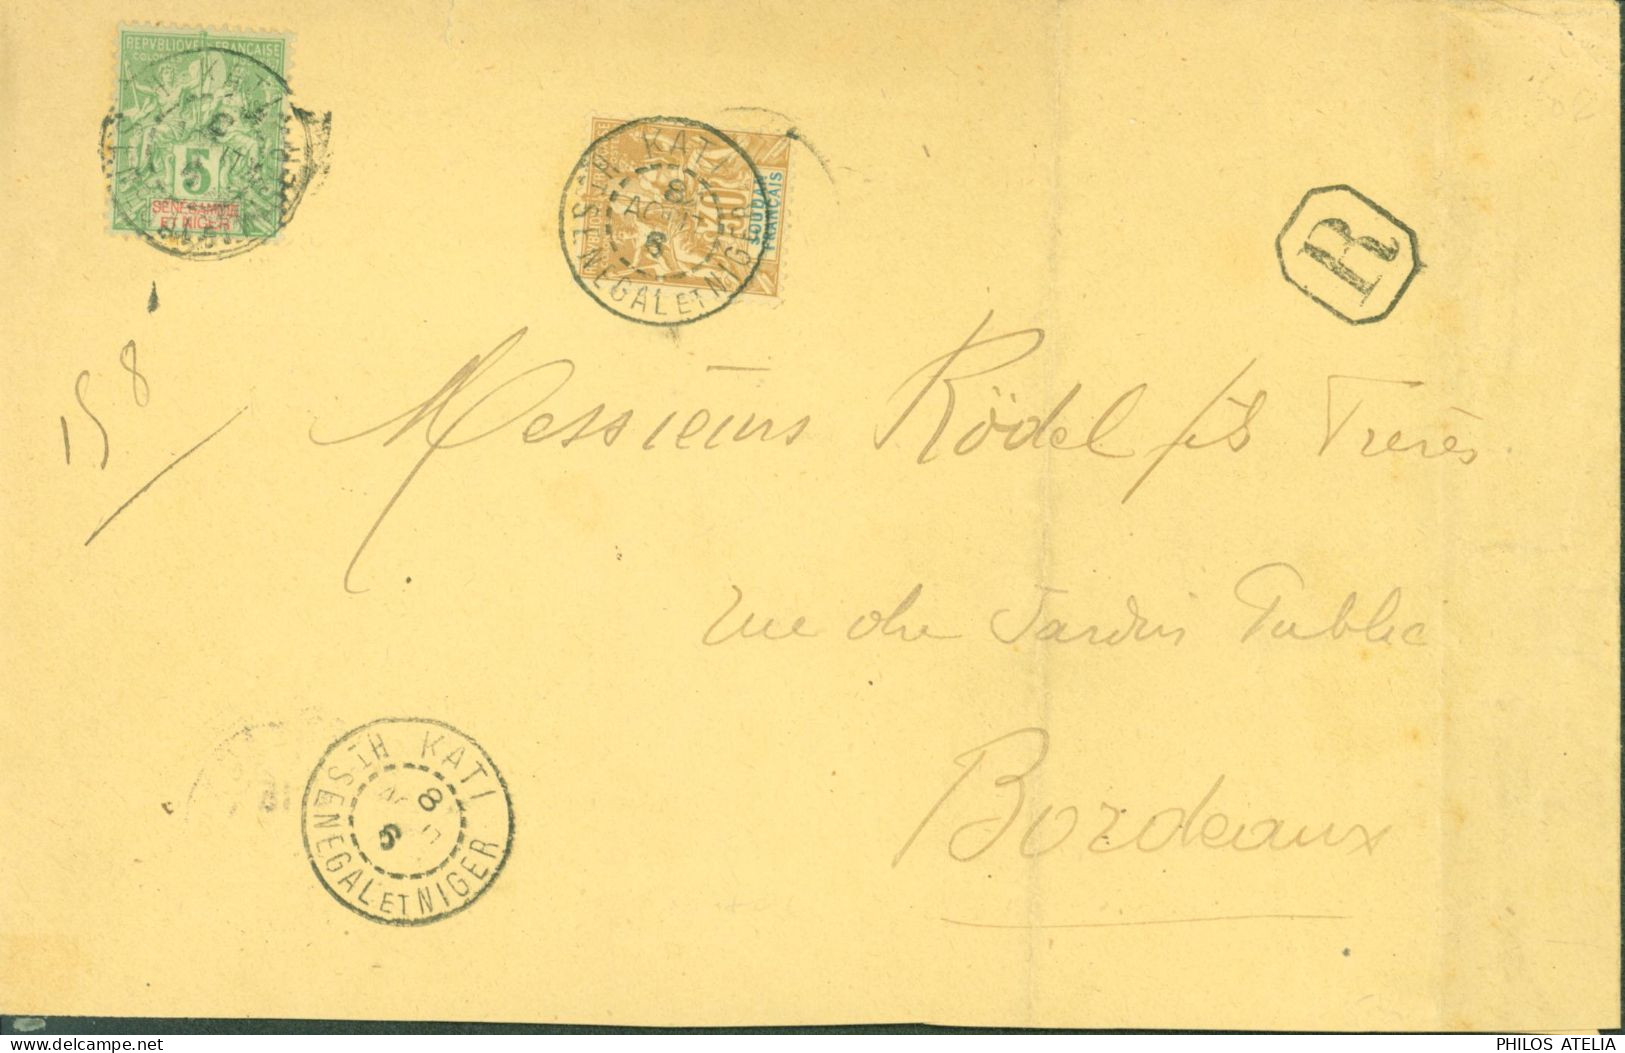 REPVBLIQVE FRANÇAISE
COLONIES
5
SÉNÉGAMBIE
ET NIGER
KATI
KATI
Ht SÉNÉGAL ET NIGER
8
AOUT
6
30
SOUDAN
FRANÇAIS
R
15 8
Messieurs Rödel fils Frères
rue du Jardin Public
Bordeaux
KATI
Ht SÉNÉGAL ET NIGER
8
6
PHILOS ATELIA